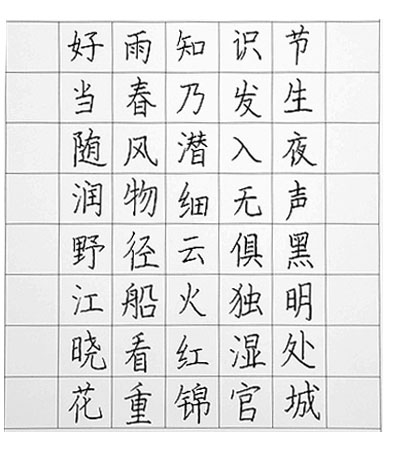 好雨知识节
当春乃发生
随风潜入夜
润物细无声
野径云俱黑
江船火独明
晓看红湿处
花重锦官城